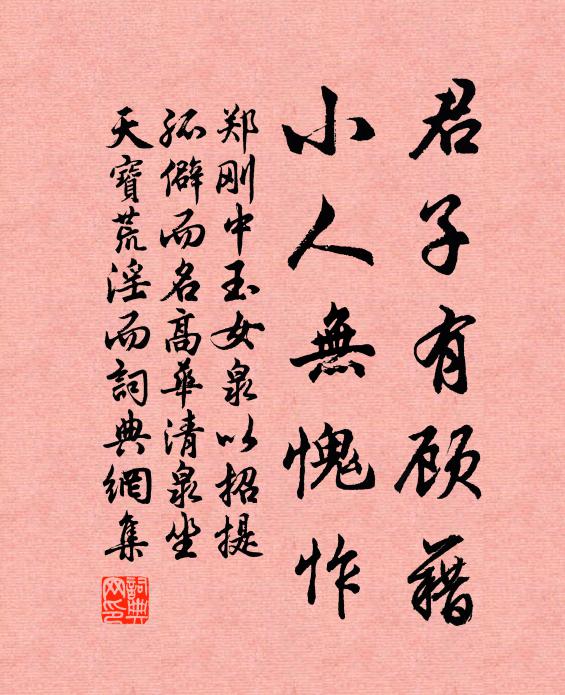 君子有顾藉
小人無愧怍
郑刚中玉女泉以招提
孤僻而名高華清泉坐
天寶荒淫而詞典網集
詞典網印